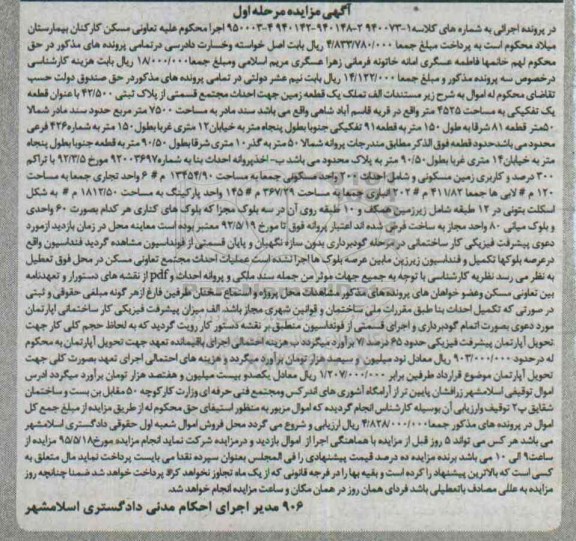 آگهی مزایده مرحله اول
در پرونده اجرائی به شماره های کلاسه ۱-۹۴۰۰۷۳ ۲-۹۴۰۱۴۸ ۳-۹۴۰۱۴۲ ۴-۹۵۰۰۰۳ اجرا محکوم علیه تعاونی مسکن کارکنان بیمارستان
میلاد محکوم است به پرداخت مبلغ جمعا ۴/۸۳۳/۷۸۰/۰۰۰ ریال بابت اصل خواسته وخسارت دادرسی درتمامی پرونده های مذکور در حق
محکوم لهم خانمها فاطمه عسگری امانه خاتونه فرمانی زهرا عسگری مریم اسلامی ومبلغ جمعا ۱۸/۰۰۰/۰۰۰ ریال بابت هزینه کارشناسی
درخصوص سه پرونده مذکور و مبلغ جمعا ۱۴/۱۲۲/۰۰۰ ریال بابت نیم عشر دولتی در تمامی پرونده های مذکور در حق صندوق دولت حسب
تقاضای محکوم له اموال به شرح زیر مستندات الف تملک یک قطعه زمین جهت احداث مجتمع قسمتی از پلاک ثبتی ۴۲/۵۰۰ با عنوان قطعه
یک تفکیکی به مساحت ۴۵۲۵ متر واقع در قریه قاسم آباد شاهی واقع می باشد سند مادر به مساحت ۷۵۰۰ متر مربع حدود سند مادر شمالا
۵۰متر قطعه ۸۱ شرقا به طول ۱۵۰ متر به قطعه ۹۱ تفکیکی جنوبا بطول پنجاه متر به خیابان ۱۲ متری غربا بطول ۱۵۰ متر به شماره ۴۲۶ فرعی
محدود می باشد حدود قطعه فوق الذکر مطابق مندرجات پروانه شمالا ۵۰ متر به گذر ۱۰ متری شرقا بطول ۹۰/۵۰ متر به قطعه جنوبا بطول پنجاه
متر به خیابان ۱۴ متری غربا بطول ۹۰/۵۰ متر به پلاک محدود می باشد ب- اخذ پروانه احداث بنا به شماره ۹۲۰۰۰۳۶۹۷ مورخ ۹۲/۳/۵ با تراکم
۳۰۰ درصد و کاربری زمین مسکونی و شامل احداث ۲۰۰ واحد مسکونی جمعا به مساحت ۱۳۴۵۴/۹۰ م # ۶ واحد تجاری جمعا به مساحت
۱۲۰ م # لابی ها جمعا ۴۱۱/۸۲ م # ۲۰۲ انباری جمعا به مساحت ۳۶۷/۲۹ م # ۱۴۵ واحد پارکینگ به مساحت ۱۸۱۲/۵۰ م # به شکل
اسکلت بتونی در ۱۲ طبقه شامل زیرزمین همکف و ۱۰ طبقه روی آن در سه بلوک مجزا که بلوک های کناری هر کدام بصورت ۶۰ واحدی
و بلوک میانی ۸۰ واحد مجاز به ساخت فرض شده اند اعتبار پروانه فوق تا مورخ ۹۲/۵/۱۹ معتبر بوده است معاینه محل در زمان بازدید از مورد
دعوی پیشرفت فیزیکی کار ساختمانی در مرحله گودبرداری بدون سازه نگهبان و پایان قسمتی از فونداسیون مشاهده گردید فنداسیون واقع
درعرصه بلوکها تکمیل و فنداسیون زیرزمین مابین عرصه بلوک ها اجرا نشده است عملیات احداث مجتمع تعاونی مسکن در محل فوق تعطیل
به نظر می رسد نظریه کارشناسی با توجه به جمیع جهات موثر من جمله سند ملکی و پروانه احداث و pdf از نقشه های دستورار و تعهدنامه
بین تعاونی مسکن وعضو خواهان های پرونده های مذکور مشاهدات محل پروژه و استماع سخنان طرفین فارغ از هر گونه مبلغی حقوقی و ثبتی
در صورتی که تکمیل احداث بنا طبق مقررات ملی ساختمان و قوانین شهری مجاز باشد الف میزان پیشرفت فیزیکی کار ساختمانی آپارتمان
مورد دعوی بصورت اتمام گودبرداری و اجرای قسمتی از فونداسیون منطبق بر نقشه دستور کار رویت گردید که به لحاظ حجم کلی کار جهت
تحویل آپارتمان پیشرفت فیزیکی حدود ۶۵ درصد/۷ برآورد میگردد ب هزینه احتمالی اجرای باقیمانده تعهد جهت تحویل آپارتمان به محکوم
له درحدود ۹۰۳/۰۰۰/۰۰۰ ریال معادل نود میلیون و سیصد هزار تومان برآورد میگردد و هزینه های احتمالی اجرای تعهد بصورت کلی جهت
تحویل آپارتمان موضوع قرارداد طرفین برابر ۱/۲۰۷/۰۰۰/۰۰۰ ریال معادل یکصدو بیست میلیون و هفتصد هزار تومان برآورد میگردد آدرس
اموال توقیفی اسلامشهر زرافشان پایین تر از آرامگاه آشوری های اندرکس ومجتمع فنی حرفه ای وزارت کار کوچه ۵۰ مقابل بن بست و ساختمان
شقایق پ۲ توقیف وارزیابی آن بوسیله کارشناس انجام گردیده که اموال مزبور به منظور استیفای حق محکوم له از طریق مزایده از مبلغ جمع کل
اموال در پرونده های مذکور جمعا ۴/۸۲۸/۰۰۰/۰۰۰ ریال ارزیابی و شروع می گردد محل فروش اموال شعبه اول حقوقی دادگستری اسلامشهر
می باشد هر کس می تواند ۵ روز قبل از مزایده با هماهنگی اجرا از اموال بازدید و درمزایده شرکت نماید انجام مزایده مورخ ۹۵/۵/۱۸ مزایده از
ساعت ۹ الی ۱۰ می باشد برنده مزایده ده درصد قیمت پیشنهادی را فی المجلس بعنوان سپرده نقدا می بایست پرداخت نماید مال متعلق به
کسی است که بالاترین پیشنهاد را کرده است و بقیه بها را در فرجه قانونی که از یک ماه تجاوز نخواهد کرد پرداخت خواهد شد ضمنا چنانچه روز
مزایده به عللی مصادف با تعطیلی باشد فردای همان روز در همان مکان و ساعت مزایده انجام خواهد شد.
۹۰۶ مدیر اجرای احکام مدنی دادگستری اسلامشهر